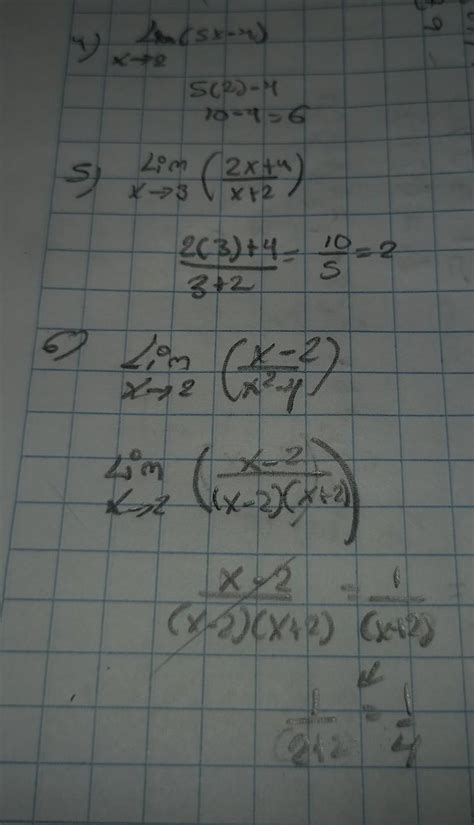 4) Lim (5x-4)
x→2
5(2)-4
10-4=6
5) Lim (2x+4/x+2)
x→3
2(3)+4/3+2 = 10/5 = 2
6) Lim (x-2/x²-4)
x→2
Lim (x-2/(x-2)(x+2))
x→2
x-2/(x-2)(x+2) = 1/(x+2) =
1/2+2 = 1/4